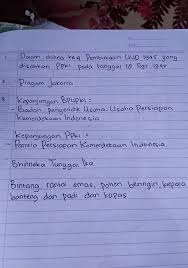 1 Dalam alinea ke 4 Pembukaan UUD 1945 yang
disahkan PPKI pada tanggal 18 Agt 1945
2 Piagam Jakarta
3 Kepanjangan BPUPKI :
- Badan penyelidik Usaha-Usaha Persiapan
Kemerdekaan Indonesia
Kepanjangan PPKI :
- Panitia Persiapan Kemerdekaan Indonesia
Bhinneka Tunggal Ika
Bintang, rantai emas, pohon beringin, kepala
banteng dan padi dan kapas